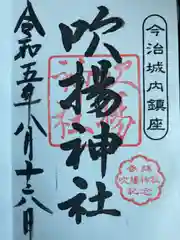 今治城内鎮座
吹揚神社
吹揚神社
参拝
吹揚神社
記念
令和五年八月十六日